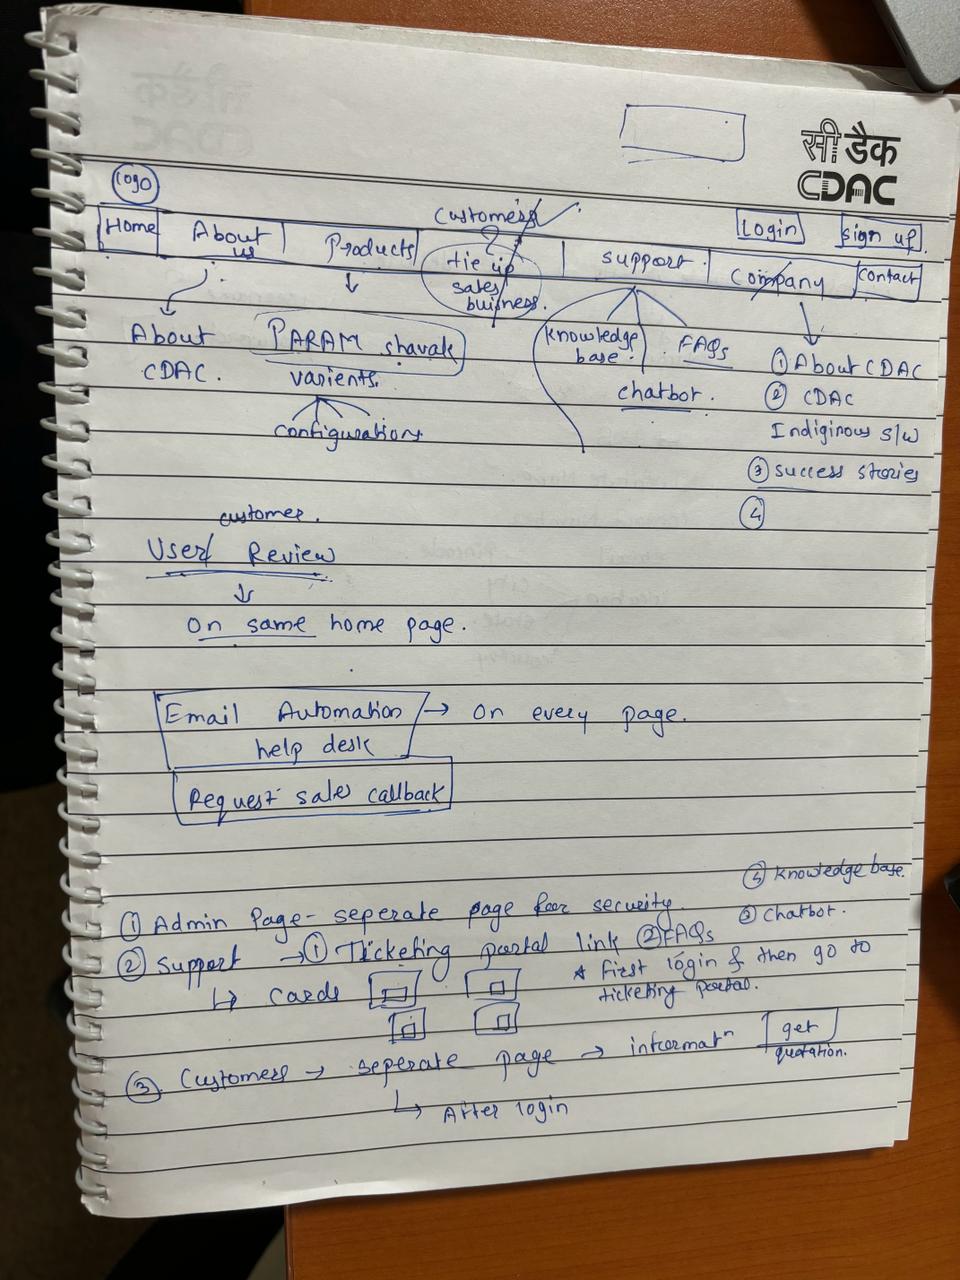 सी डैक
CDAC
logo
Customers
Login
Sign up
Home
About us
Products
tie up
sales/
buisness.
support
Company
Contact
About
CDAC.
PARAM shavak
varients.
configurations
knowledge
base.
FAQs
chatbot.
① About CDAC
② CDAC
Indiginous s/w
③ success stories
④
customer.
User/ Review
On same home page.
Email Automation → on every page.
help desk
Request sales callback
① Admin Page - seperate page for security.
② Support → ① Ticketing portal link ② FAQs
③ Chatbot.
④ Knowledge base.
* First login & then go to
ticketing portal.
↳ cards
③ Customers → seperate page → informatn get
quotation.
↳ After login